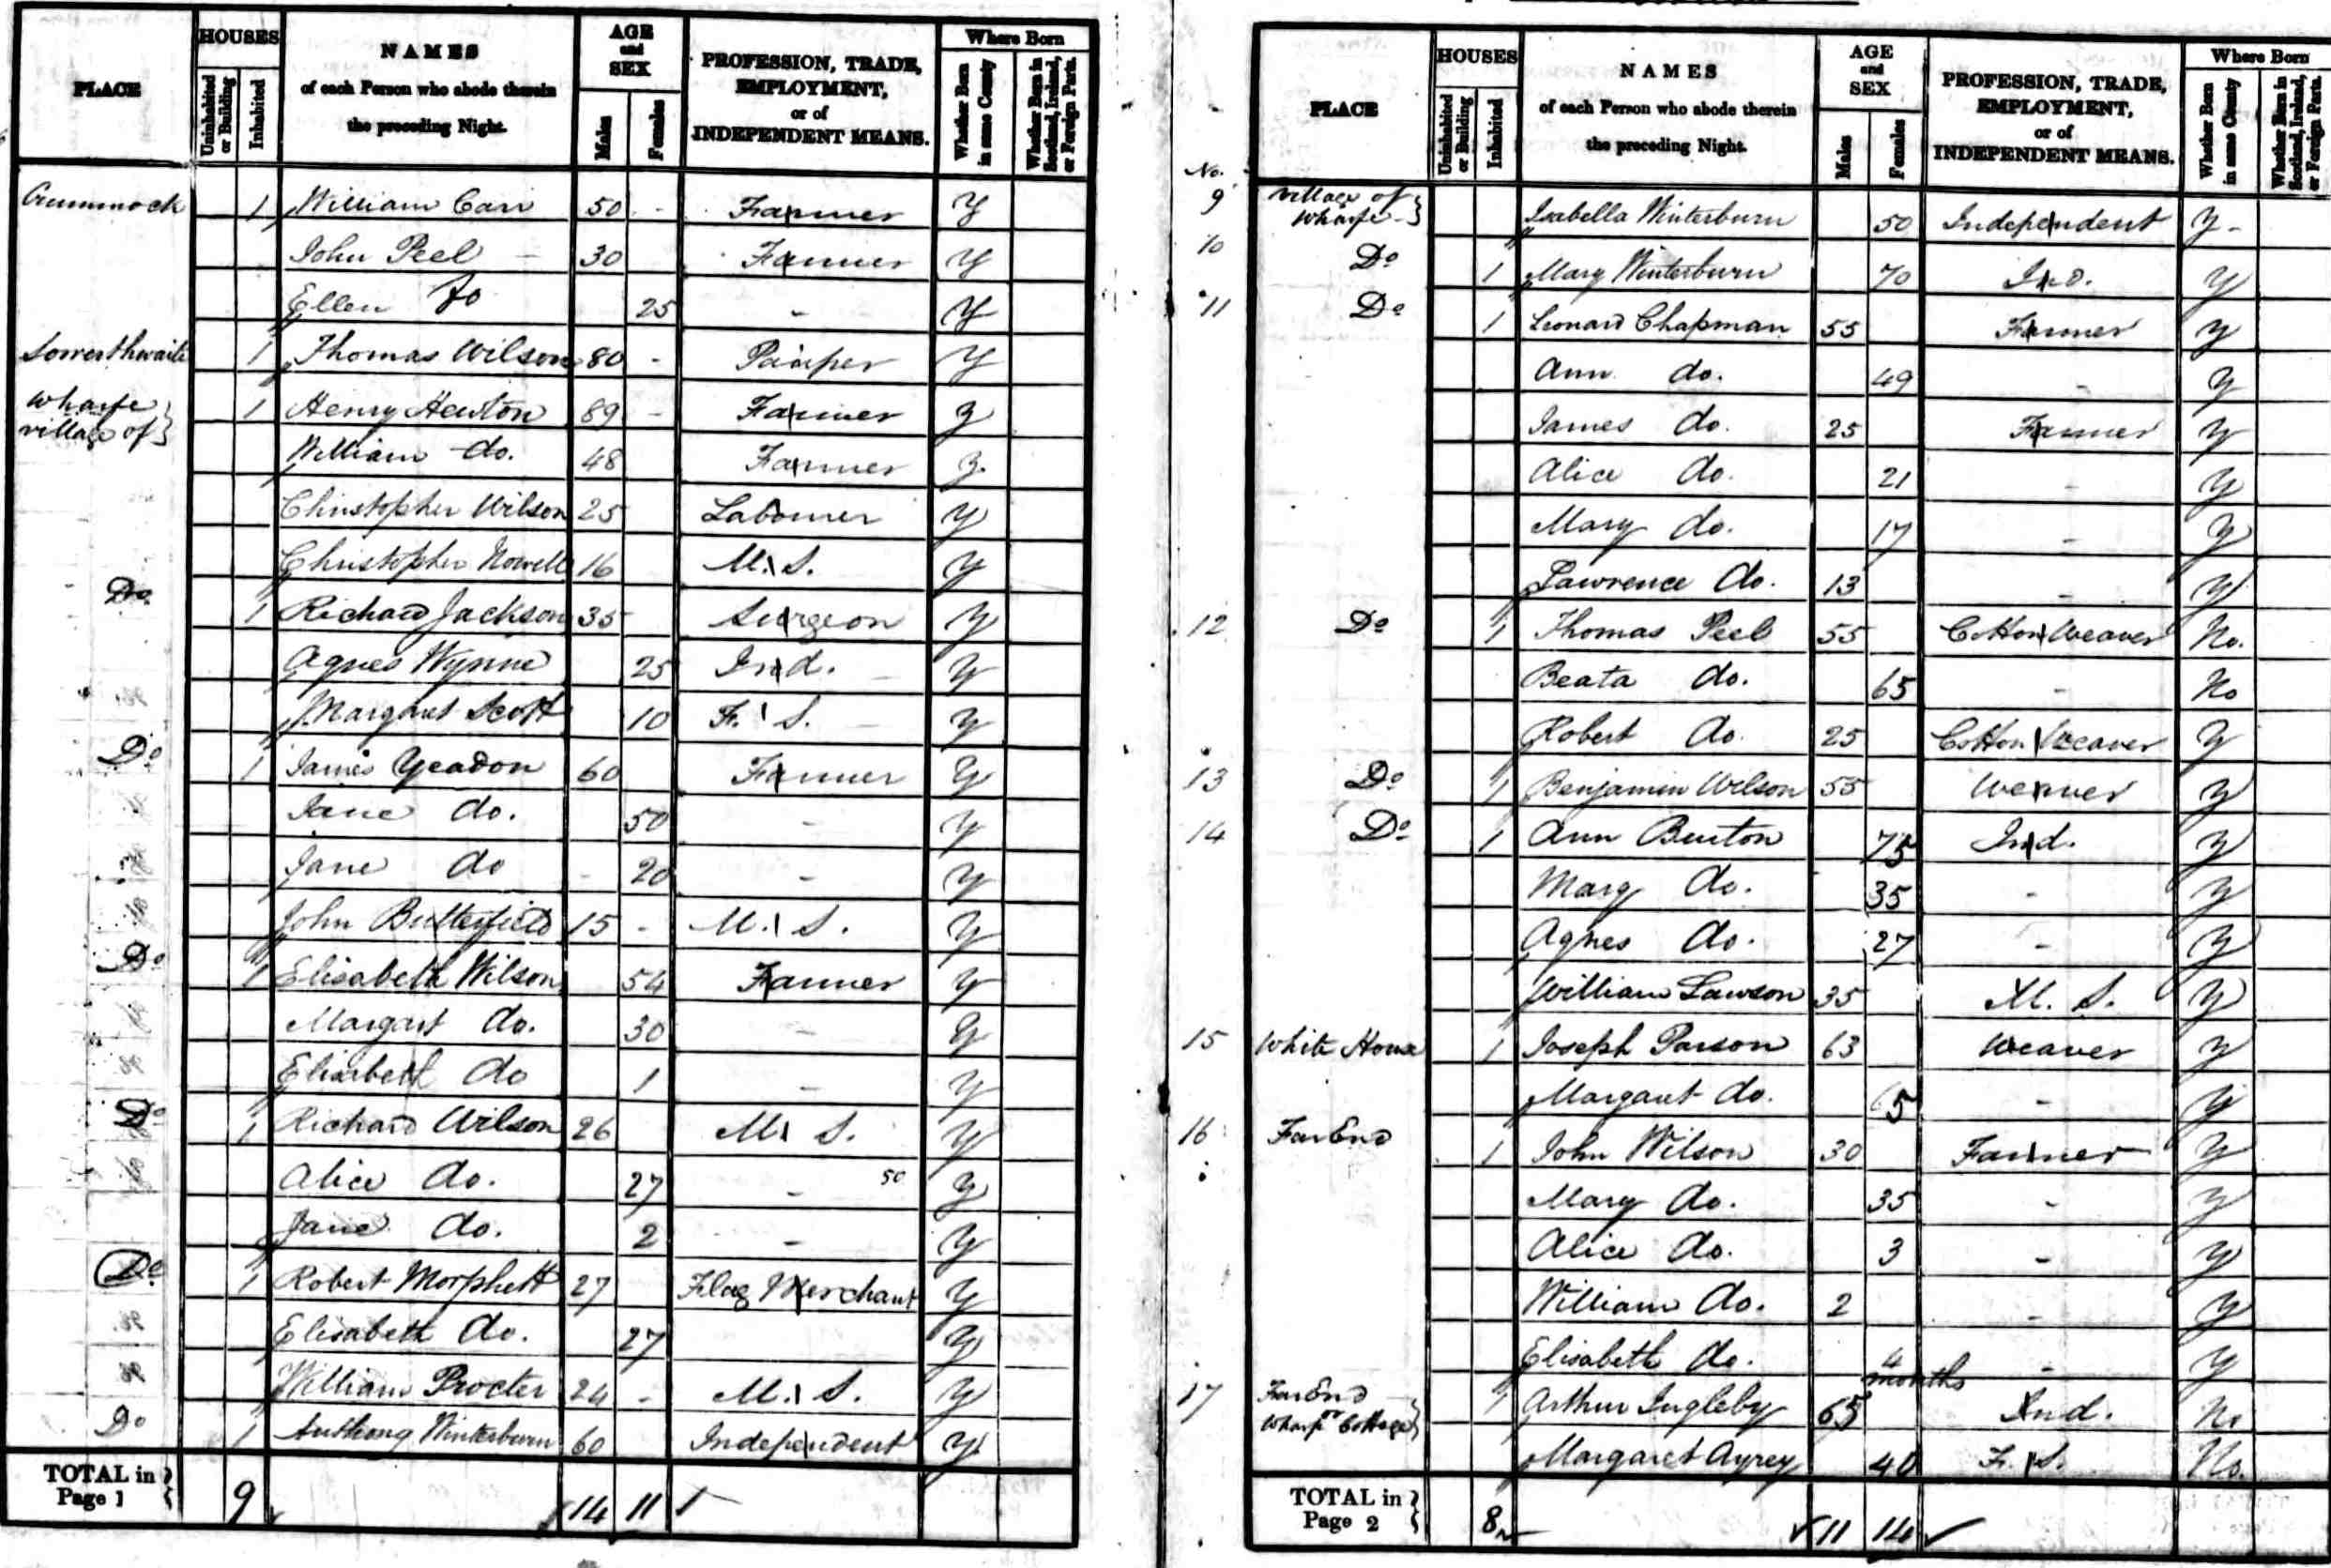 PLACE
HOUSES
Uninhabited or Building
Inhabited
NAMES
of each Person who abode therein
the preceding Night.
AGE
and
SEX
Males
Females
PROFESSION, TRADE,
EMPLOYMENT,
or of
INDEPENDENT MEANS.
Where Born
Whether Born in same County
Whether Born in Scotland, Ireland, or Foreign Parts.
Crummock 1 William Carr 50 - Farmer Y
John Peel 30 Farmer Y
Ellen Do 25 - Y
Sowerthwaite 1 Thomas Wilson 80 - Pauper Y
Wharfe village of } 1 Henry Hewton 89 - Farmer Y
William do. 48 Farmer Y
Christopher Wilson 25 Labourer Y
Christopher Nowell 16 M. S. Y
Do. 1 Richard Jackson 35 Surgeon Y
Agnes Wynne 25 Ind. Y
Margaret Scott 10 F. S. Y
Do 1 James Yeadon 60 Farmer Y
Jane do. 50 - Y
Jane do 20 - Y
John Butterfield 15 - M. S. Y
Do 1 Elisabeth Wilson 54 Farmer Y
Margart do. 30 - Y
Elisabeth do 1 - Y
Do 1 Richard Wilson 26 M. S. Y
Alice do. 27 - 50 Y
Jane do. 2 - Y
Do 1 Robert Morphett 27 Flag Merchant Y
Elisabeth do. 27 Y
William Procter 24 - M. S. Y
Do 1 Anthony Winterburn 60 Independent Y
TOTAL in Page 1 } 9 14 11
PLACE
HOUSES
Uninhabited or Building
Inhabited
NAMES
of each Person who abode therein
the preceding Night.
AGE
and
SEX
Males
Females
PROFESSION, TRADE,
EMPLOYMENT,
or of
INDEPENDENT MEANS.
Where Born
Whether Born in same County
Whether Born in Scotland, Ireland, or Foreign Parts.
No.
9 Village of Wharfe } Isabella Winterburn 50 Independent Y
10 Do 1 Mary Winterburn 70 Ind. Y
11 Do 1 Leonard Chapman 55 Farmer Y
Ann do. 49 - Y
James do. 25 Farmer Y
Alice do. 21 - Y
Mary do. 17 - Y
Lawrence do. 13 - Y
12 Do 1 Thomas Peel 55 Cotton Weaver No.
Beata do. 65 - No
Robert do. 25 Cotton Weaver Y
13 Do 1 Benjamin Wilson 55 Weaver Y
14 Do 1 Ann Buxton 75 Ind. Y
Mary do. 35 - Y
Agnes do. 27 - Y
William Lawson 35 M. S. Y
15 White House 1 Joseph Parson 63 Weaver Y
Margaret do. 65 - Y
16 Far End 1 John Wilson 30 Farmer Y
Mary do. 35 - Y
Alice do. 3 - Y
William do. 2 - Y
Elisabeth do. 4 months - Y
17 Far End or Wharfe Cottage } 1 Arthur Ingleby 65 Ind. No
Margaret Ayrey 40 F. S. No.
TOTAL in Page 2 } 8 11 14